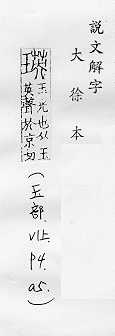 說文解字
大徐本
瑛
玉光也从玉
英聲於京切
(玉部. V1上. P4. a5.)